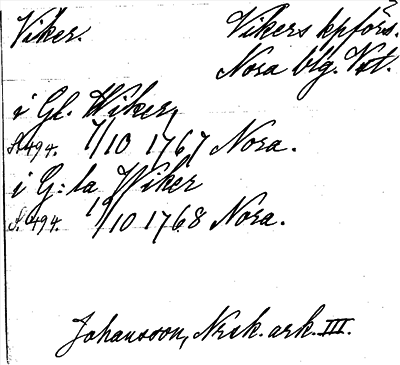 Viker. Vikers kpförs.
Nora blg. Vst.
i Gl. Wiker,
S. 494. 7/10 1767 Nora.
i G:la Wiker
S. 494. 1/10 1768 Nora.
Johansson, Nrsk. ark. III.